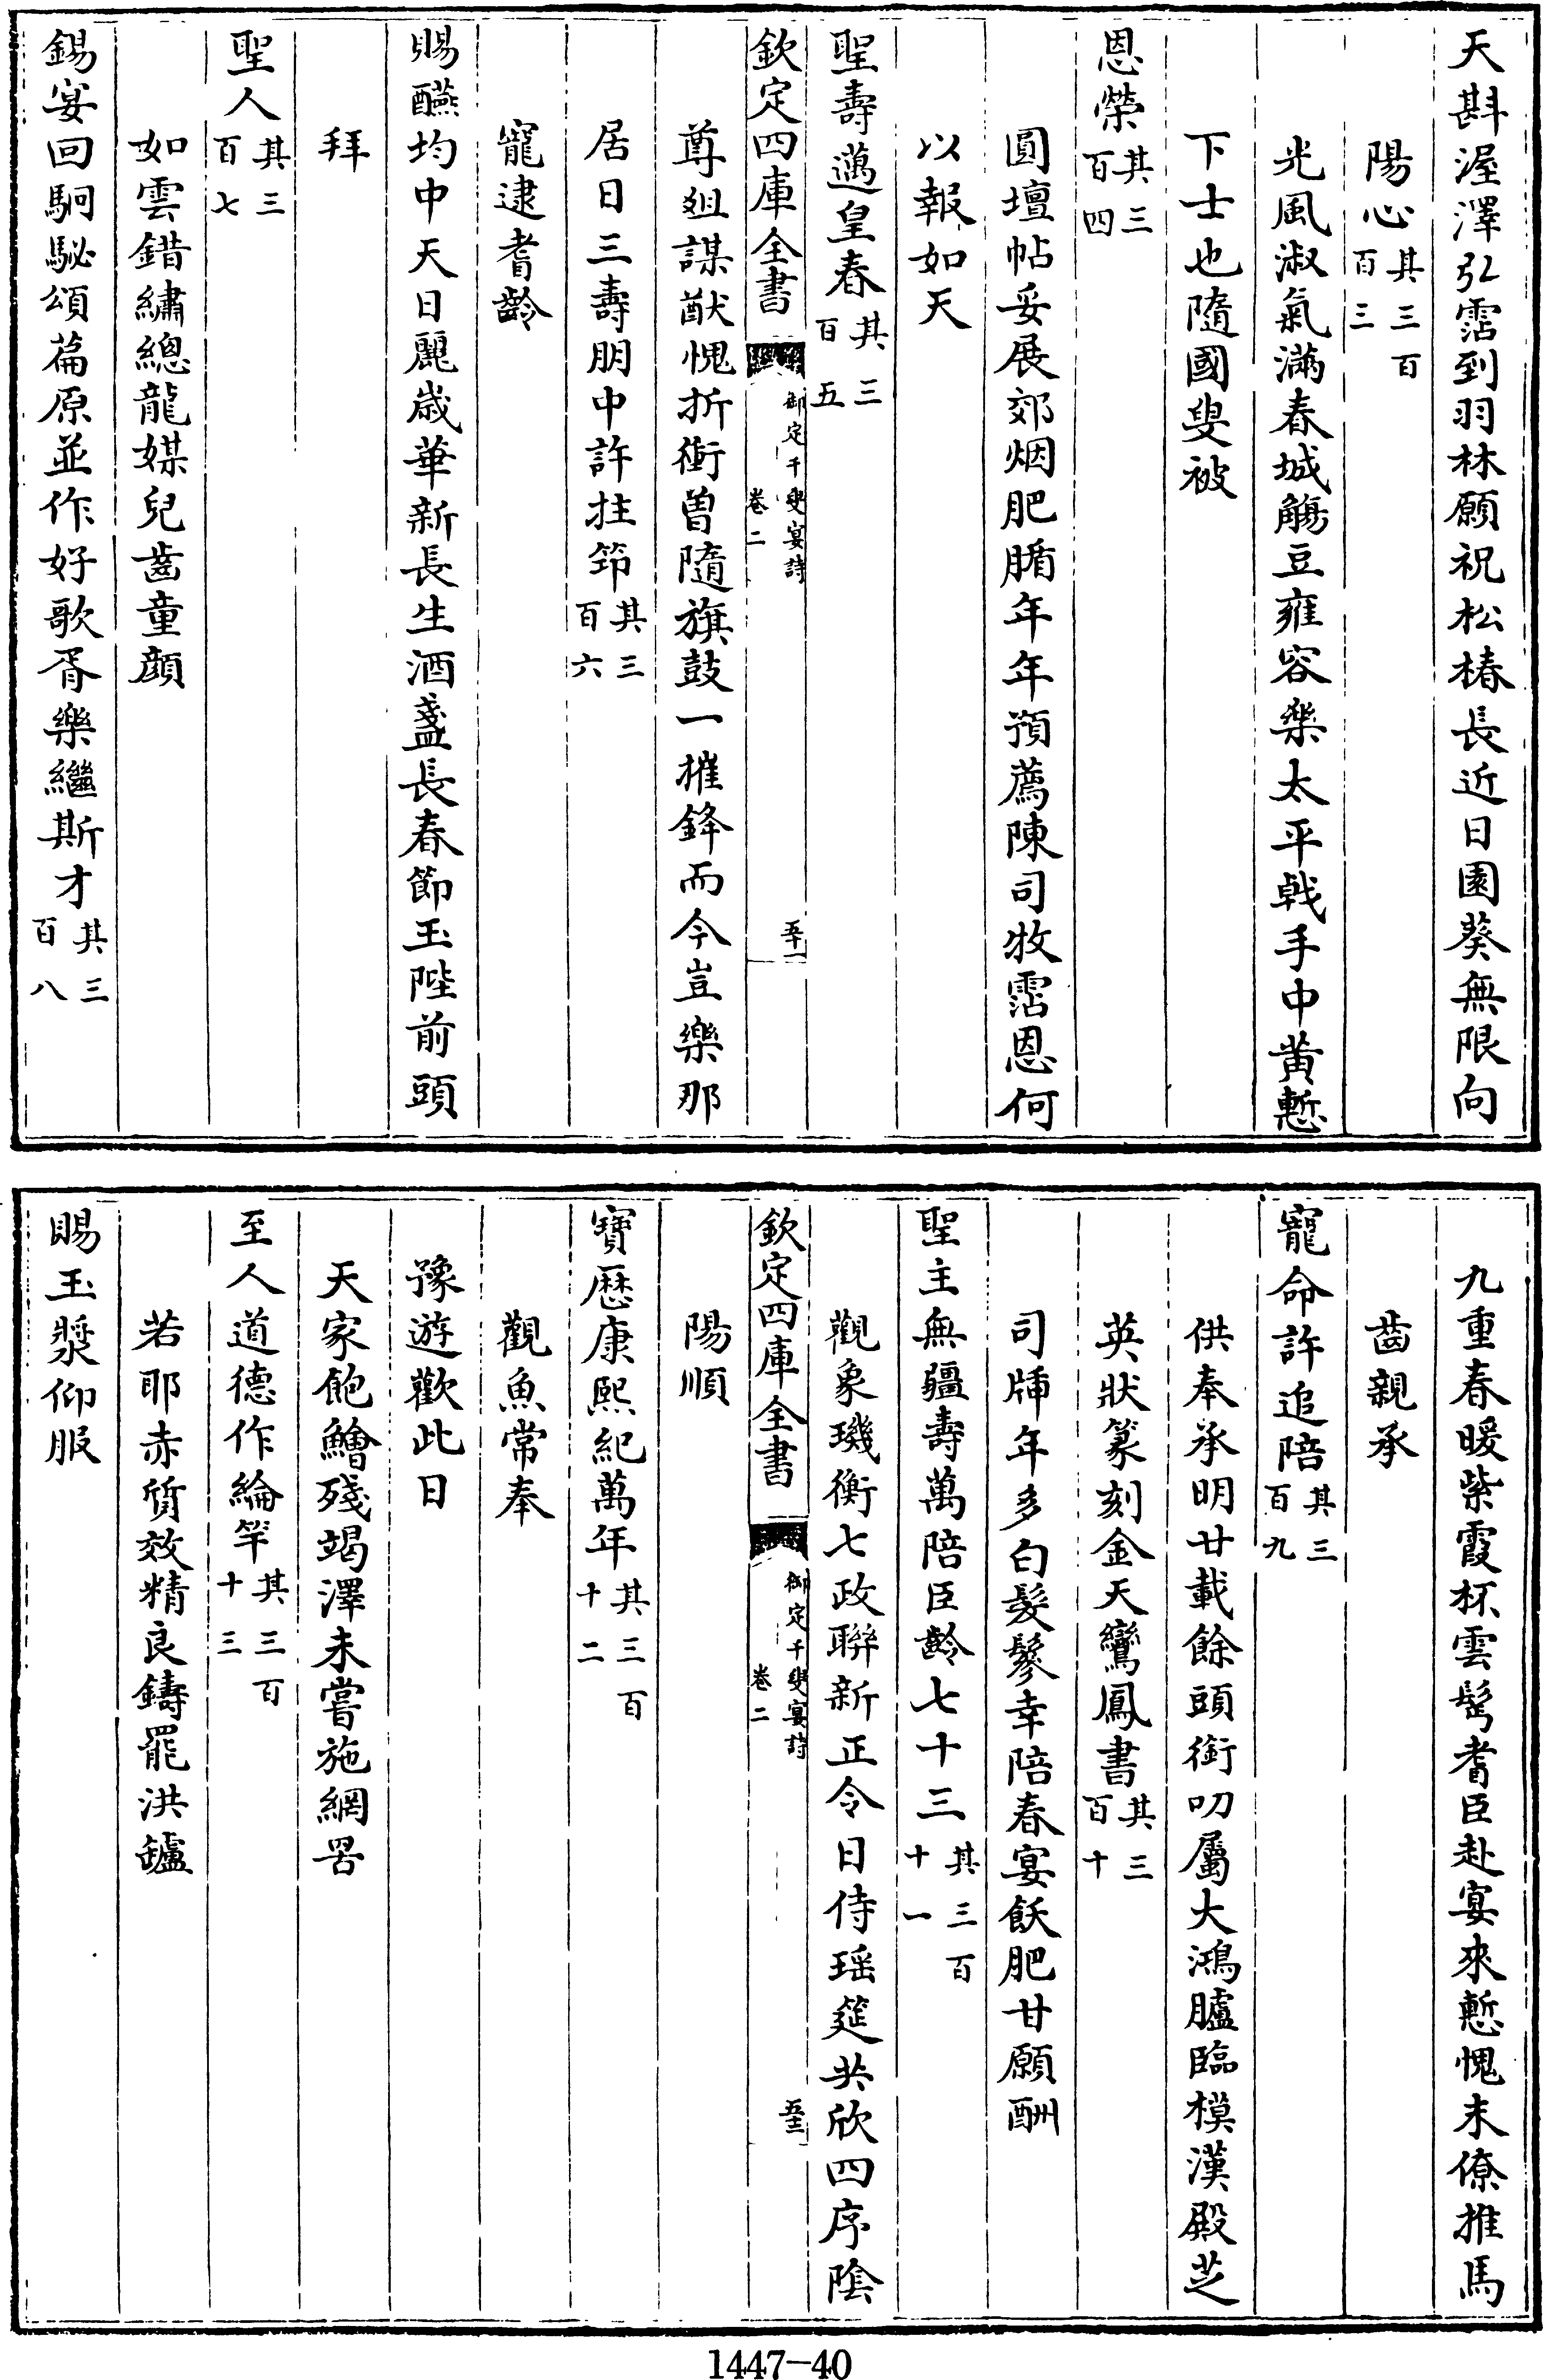 天斟渥澤弘霑到羽林願祝松椿長近日園葵無限向
陽心其三百百三
光風淑氣滿春城觴豆雍容樂太平戟手中黄慙
下士也隨國叟被
恩榮其三百四
圓壇帖妥展郊烟肥腯年年預薦陳司牧霑恩何
以報如天
聖壽邁皇春其三百五
欽定四庫全書
御定千叟宴詩
卷二
五十一
尊俎謀猷愧折衝曾隨旗鼓一摧鋒而今豈樂那
居日三壽朋中許拄筇其三百六
寵逮耆齡
賜醼均中天日麗歳華新長生酒盞長春節玉陛前頭
拜
聖人其三百七
如雲錯繡總龍媒兒齒童顔
錫宴回駉駜頌篇原並作好歌胥樂繼斯才其三百八
九重春暖紫霞杯雲髩耆臣赴宴來慙愧末僚推馬
齒親承
寵命許追陪其三百九
供奉承明廿載餘頭銜叨屬大鴻臚臨模漢殿芝
英狀篆刻金天鸞鳳書其三百十
司牐年多白髮鬖幸陪春宴飫肥甘願酬
聖主無疆壽萬陪臣齡七十三其三百十一
觀象璣衡七政聯新正令日侍瑶筵共欣四序陰
欽定四庫全書
御定千叟宴詩
卷二
五十二
陽順
寶厯康熙紀萬年其三百十二
觀魚常奉
豫遊歡此日
天家飽鱠殘竭澤未嘗施網罟
至人道德作綸竿其三百十三
若耶赤質效精良鑄罷洪鑪
賜玉漿仰服
1447-40